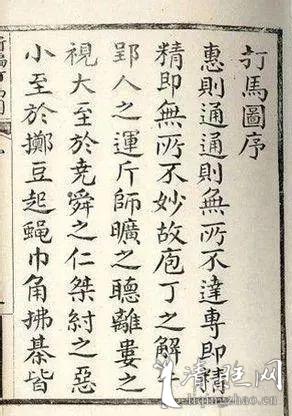 打馬圖序
惠則通通則無所不達專即精
精即無所不妙故庖丁之解
郢人之運斤師曠之聽離婁之
視大至於堯舜之仁桀紂之惡
小至於擲豆起蝇巾角拂棊皆
清旺网